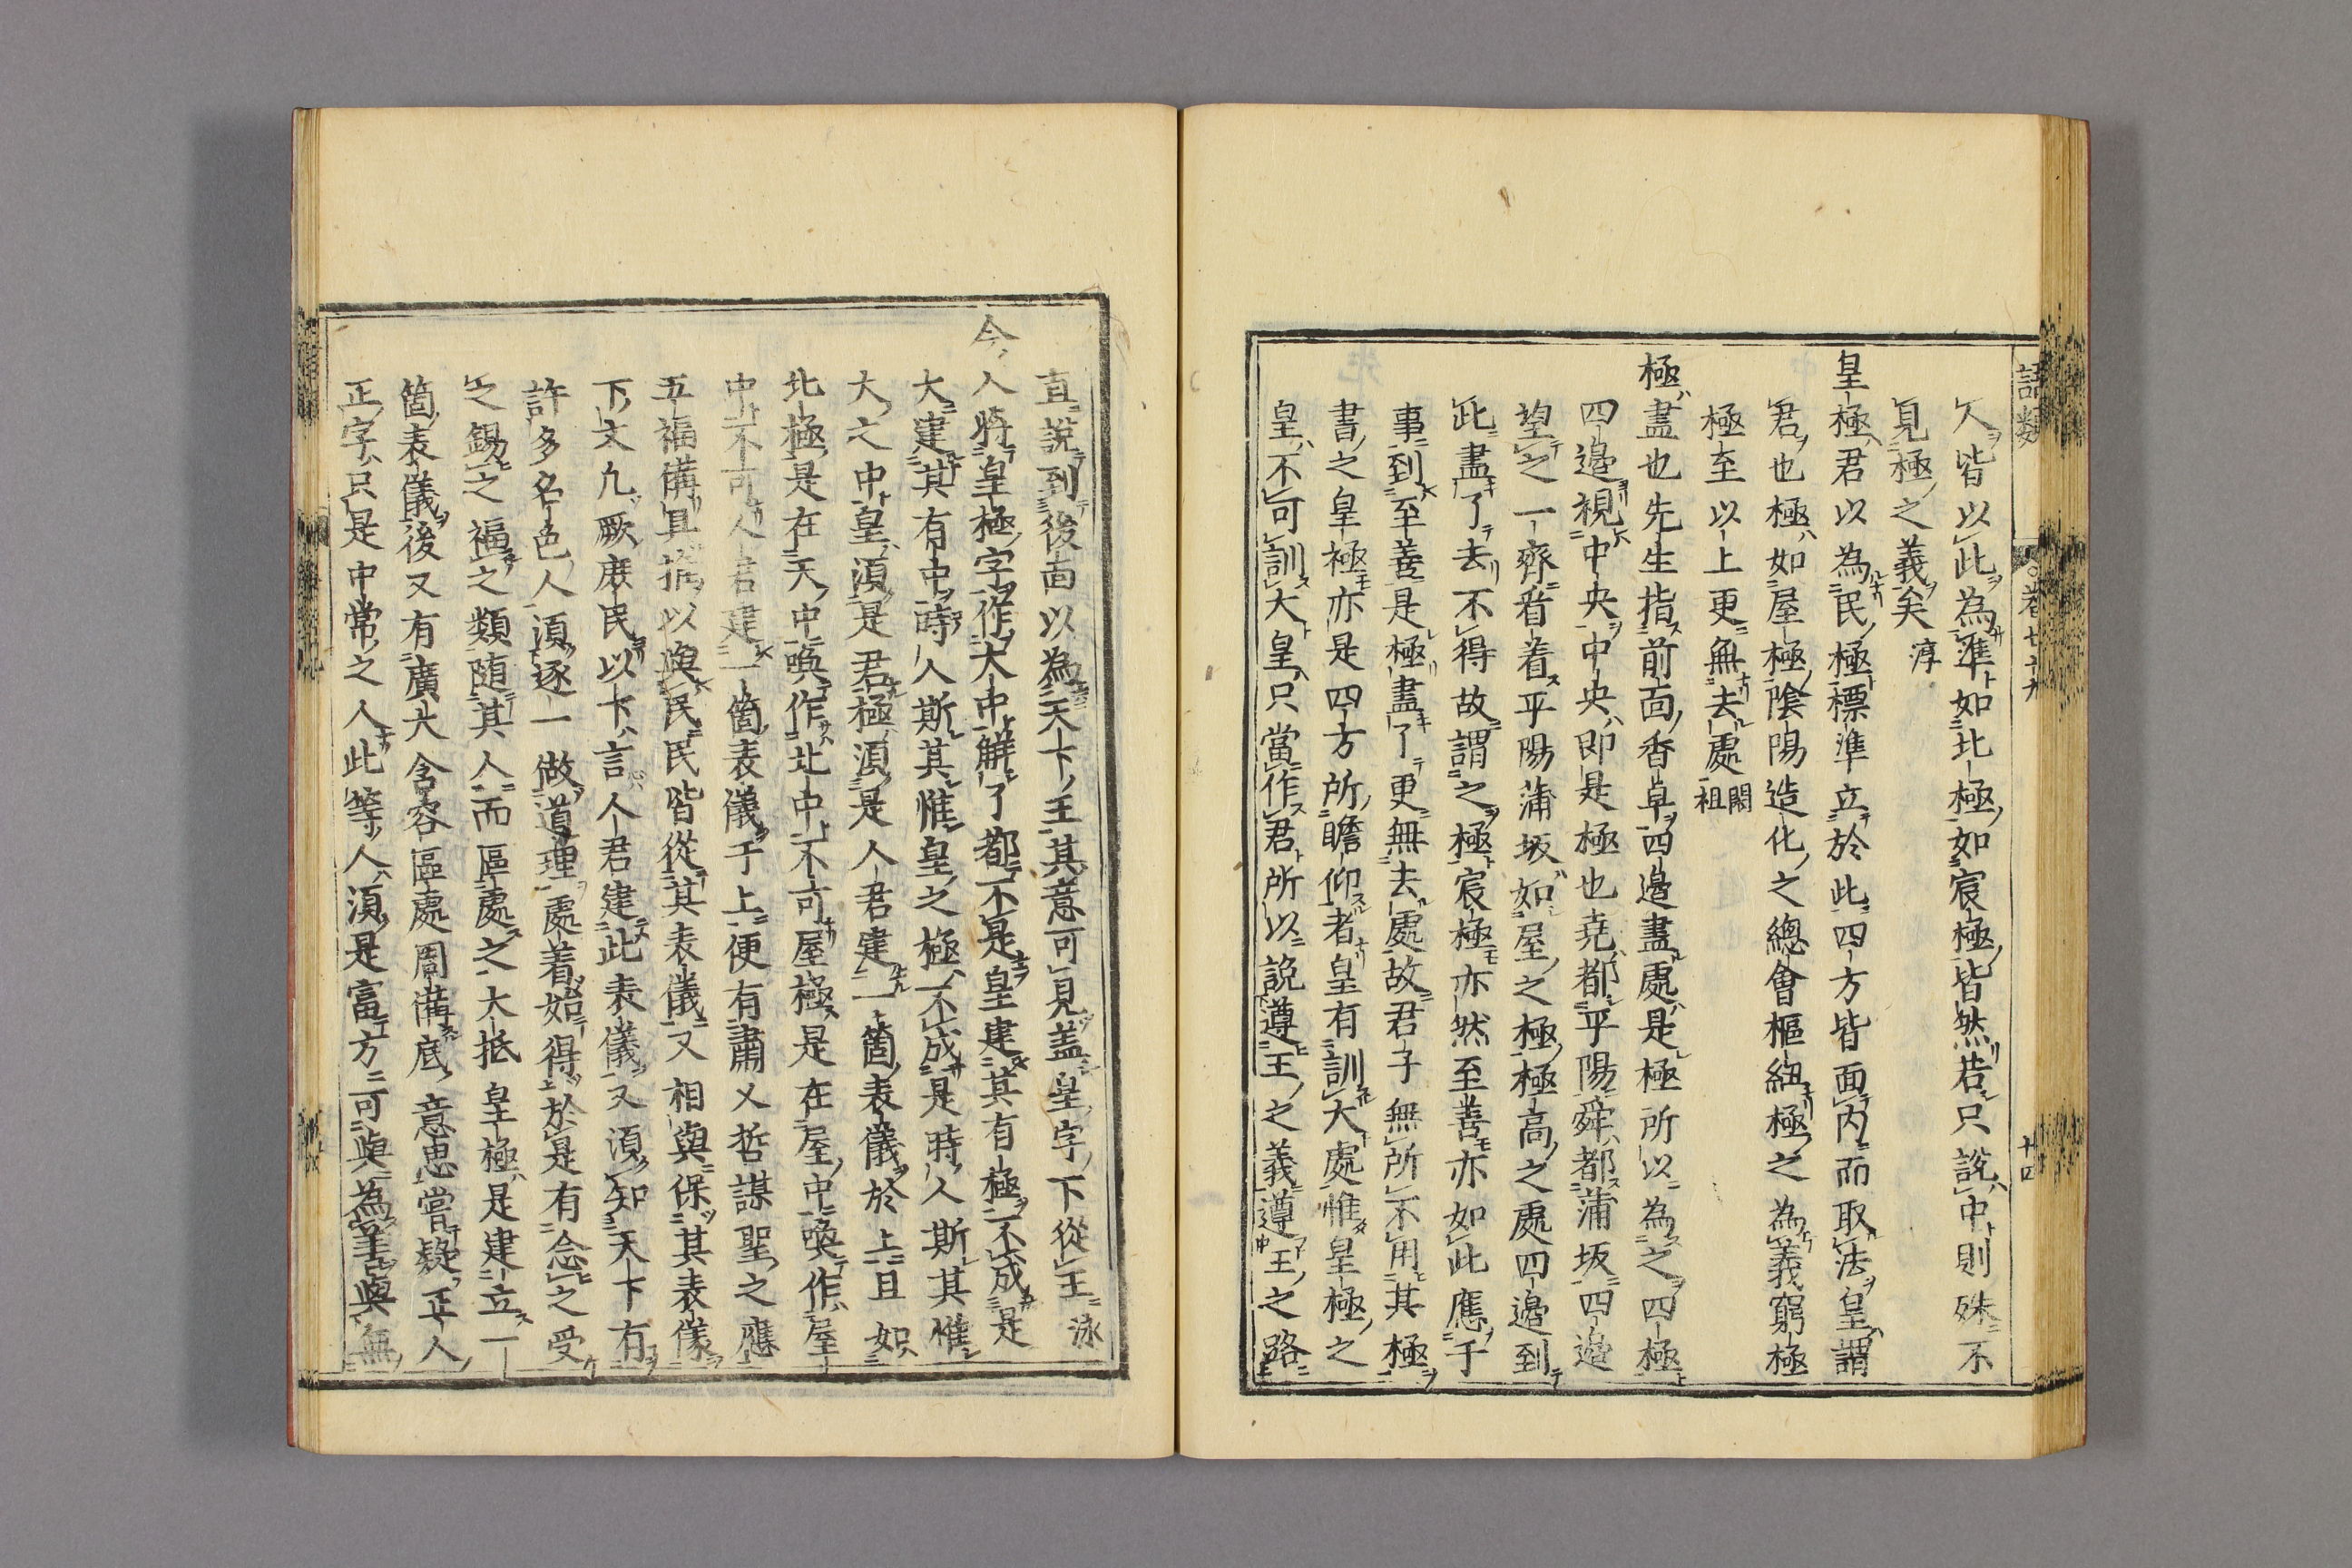 語類
卷七十九
十四
人皆以此為準如北極如宸極皆然若只說中則殊不
見極之義矣淳
皇極君以為民極標準立於此四方皆面內而取法皇謂
君也極如屋極陰陽造化之總會樞紐極之為義窮極
極至以上更無去處閎祖
極盡也先生指前面香卓四邊盡處是極所以為之四極
四邊視中央中央即是極也堯都平陽舜都蒲坂四邊
望之一齊看着平陽蒲坂如屋之極極高之處四邊到
此盡了去不得故謂之極宸極亦然至善亦如此應于
事到至善是極盡了更無去處故君子無所不用其極
書之皇極亦是四方所瞻仰者皇有訓大處惟皇極之
皇不可訓大皇只當作君所以說遵王之義遵王之路
直說到後面以為天下王其意可見蓋皇字下從王泳
今人將皇極字作大中解了都不是皇建其有極不成是
大建其有中時人斯其惟皇之極不成是時人斯其惟
大之中皇須是君極須是人君建一箇表儀於上且如
北極是在天中喚作北中不可屋極是在屋中喚作屋
中不可人君建一箇表儀于上便有肅乂哲謀聖之應
五福備具推以與民民皆從其表儀又相與保其表儀
下文凡厥庶民以下言人君建此表儀又須知天下有
許多名色人須逐一做道理處着始得於是有念之受
之錫之福之類隨其人而區處之大抵皇極是建立一
箇表儀後又有廣大含容區處周備底意思嘗疑正人
正字只是中常之人此等人須是富方可與為善與無